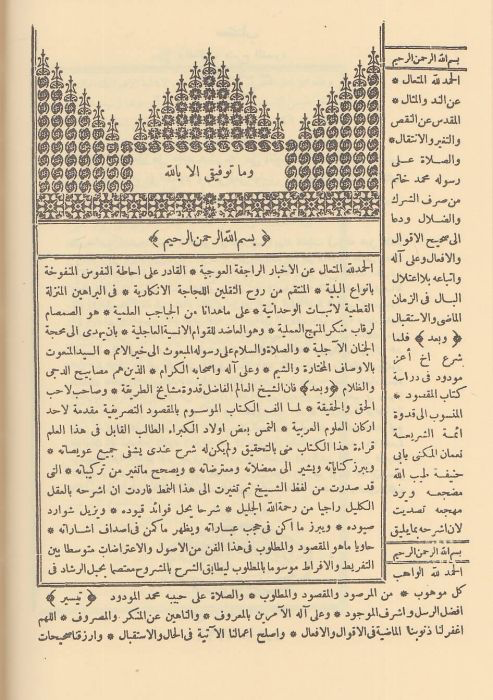 وما توفيقى الا بالله
﴿ بسم الله الرحمن الرحيم ﴾
الحمد لله المتعال عن الاخبار الراجفة العوجية * القادر على احاطة النفوس المنفوخة
بانواع البلية * المنتقم من روح الثقلين اللجاجة الانكارية * فى البراهين المنزلة
القطعية لاثبات الوحدانية * على ماهدانا من الحجاجب العلمية * هو الصمصام
لرقاب منكر المنهج العملية * وهو الماضد للقوام الانسية الماجلية * بان يهدى الى محجة
الجنان الآجلية * والصلاة والسلام على رسوله المبعوث الى خير الامم * السيد المنعوت
بالاوصاف المختارة والشيم * وعلى آله واصحابه الكرام * الذين هم مصابيح الدجى
والظلام ﴿ وبعد ﴾ فان الشيخ العالم الفاضل قدوة مشايخ الطريقة * وصاحب لاحب
الحق والحقيقة * لما الف الكتاب الموسوم بالمقصود التصريفية مقدمة لاحد
اركان العلوم العربية * التمس بعض اولاد الكبراء الطالب القابل فى هذا العلم
قراءة هذا الكتاب منى بالتحقيق ولم يكن له شرح عندى يشفى جميع عويصاته *
ويبرز كناياته ويشير الى معضلاته ومعترضاته * ويصحح ماتغير من تركيباته * التى
قد صدرت من لفظ الشيخ ثم تغيرت الى هذا النمط فاردت ان اشرحه بالعقل
الكليل راجيا من رحمة الله الجليل * شرحا يحل فوائد قيوده * ويزيل شوارد
صيوده * ويبرز ما اكن فى حجب عباراته ويظهر ماكن فى اصداف اشاراته *
حاويا ماهو المقصود والمطلوب فى هذا الفن من الاصول والاعتراضات متوسطا بين
التفريط والافراط موسوما بالمطلوب ليطابق الشرح بالمشروح معتصما بحبل الرشاد فى
بسم الله الرحمن الرحيم
الحمد لله المتعال *
عن الند والمثال *
المقدس عن النقص
والتغير والانتقال *
والصلاة على
رسوله محمد خاتم
من صرف الشرك
والضلال ودعا
الى صحيح الاقوال
والافعال وعلى آله
واتباعه بلا اعتلال
البال فى الزمان
الماضى والاستقبال
﴿ وبعد ﴾ فلما
شرع اخ أعز
مودود فى دراسة
كتاب المقصود *
المنسوب الى قدوة
أئمة الشريعة
نعمان المكنى بابى
حنيفة طيب الله
مضجعه وبرد
مهجعه تصديت
لان اشرحه بما يليق
بسم الله الرحمن الرحيم
الحمد لله الواهب
كل موهوب * من المرصود والمقصود والمطلوب * والصلاة على حبيبه محمد المودود ﴿ تيسير ﴾
افضل الرسل واشرف الموجود * وعلى آله الآمرين بالمعروف * والناهين عن المنكر والمصروف * اللهم
اغفر لنا ذنوبنا الماضية فى الاقوال والافعال * واصلح اعمالنا الآتية فى الحال والاستقبال * وارزقنا صحيحات